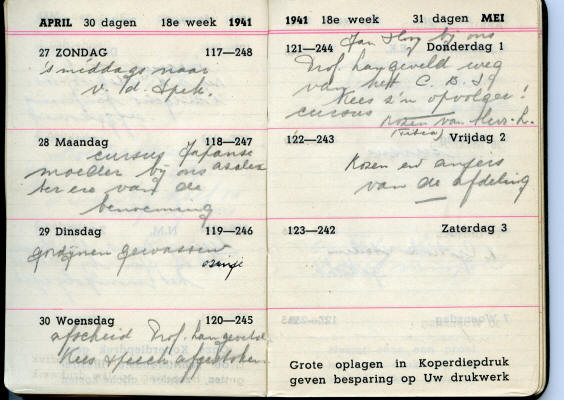 APRIL 30 dagen 18e week 1941
27 ZONDAG 117—248
's middags naar
v. d.
28 Maandag 118—247
cursus Japanse
moeder bij ons azalea
ter ere van de
benoeming
29 Dinsdag 119—246
gordijnen gewassen
oranje
30 Woensdag 120—245
afscheid Prof. Langeveld
Kees speech afgestoken
1941 18e week 31 dagen MEI
121—244 Donderdag 1
Jan bij ons
Prof. Langeveld weg
van het C.B.
Kees z'n opvolger!
cursus Rozen van
122—243 Vrijdag 2
Rozen en anjers
van de afdeling
123—242 Zaterdag 3
Grote oplagen in Koperdiepdruk
geven besparing op Uw drukwerk